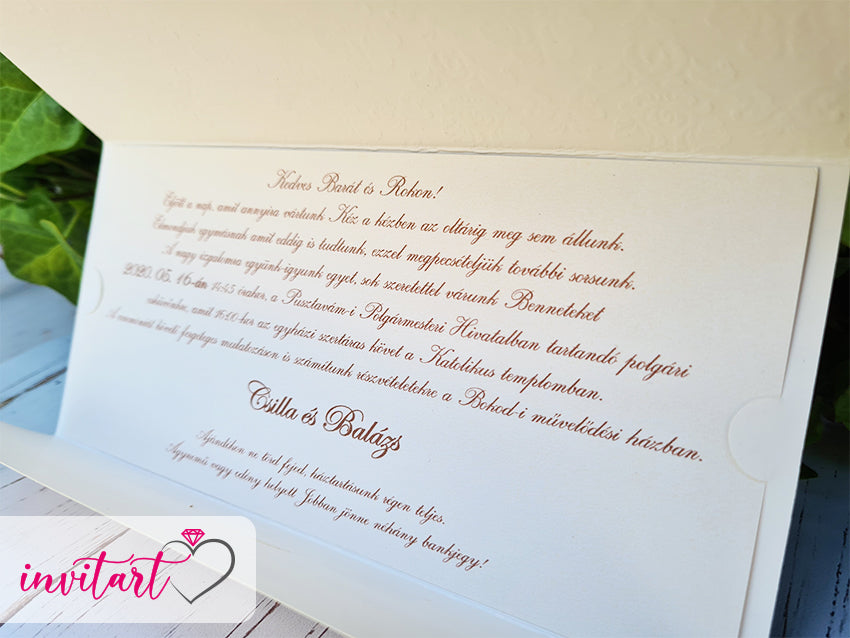 Kedves Barát és Rokon!
Eljött a nap, amit annyira vártunk Kéz a kézben az oltárig meg sem állunk.
Elmondjuk egymásnak amit eddig is tudtunk, ezzel megpecsételjük további sorsunk.
A nagy izgalomra együnk-igyunk egyet, sok szeretettel várunk Benneteket
2020. 05. 16-án 14:45 órakor, a Pusztavám-i Polgármesteri Hivatalban tartandó polgári
esküvőnkre, amit 16:00-kor az egyházi szertartás követ a Katolikus templomban.
A ceremóniát követő fergeteges mulatozáson is számítunk részvételetekre a Bokod-i művelődési házban.
Csilla és Balázs
Ajándékon ne törd fejed, háztartásunk régen teljes.
Ágynemű vagy edény helyett Jobban jönne néhány bankjegy!
invitart